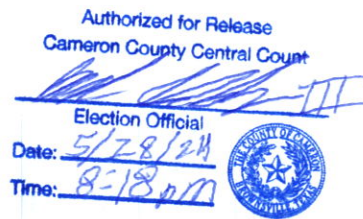 Authorized for Release
Cameron County Central Count
III
Election Official
Date: 5/28/24
Time: 8:18pm
THE COUNTY OF CAMERON
BROWNSVILLE, TEXAS